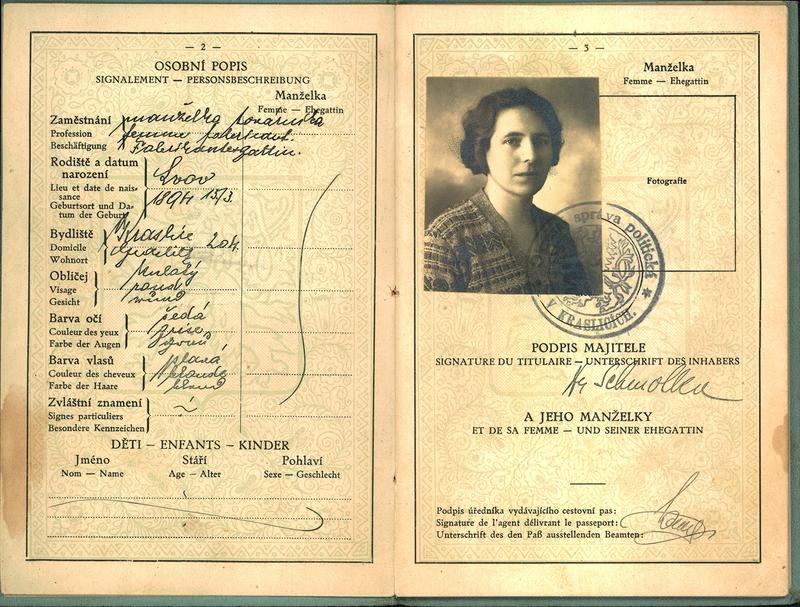 — 2 —
OSOBNÍ POPIS
SIGNALEMENT — PERSONSBESCHREIBUNG
Manželka
Femme — Ehegattin
Zaměstnání
Profession
Beschäftigung
manželka továrníka
femme fabricant.
Fabrikantensgattin.
Rodiště a datum
narození
Lieu et date de nais-
sance
Geburtsort und Da-
tum der Geburt
Lvov
1894 15/3
Bydliště
Domicile
Wohnort
Kraslice
204
Obličej
Visage
Gesicht
kulatý
rond
rund
Barva očí
Couleur des yeux
Farbe der Augen
šedá
grise
grau
Barva vlasů
Couleur des cheveux
Farbe der Haare
plavá
blonde
blond
Zvláštní znamení
Signes particuliers
Besondere Kennzeichen
DĚTI — ENFANTS — KINDER
Jméno Stáří Pohlaví
Nom — Name Age — Alter Sexe — Geschlecht
— 3 —
Manželka
Femme — Ehegattin
Fotografie
správa politická
v KRASLICÍCH.
PODPIS MAJITELE
SIGNATURE DU TITULAIRE — UNTERSCHRIFT DES INHABERS
Schmolka
A JEHO MANŽELKY
ET DE SA FEMME — UND SEINER EHEGATTIN
Podpis úředníka vydávajícího cestovní pas:
Signature de l'agent délivrant le passeport:
Unterschrift des den Paß ausstellenden Beamten: